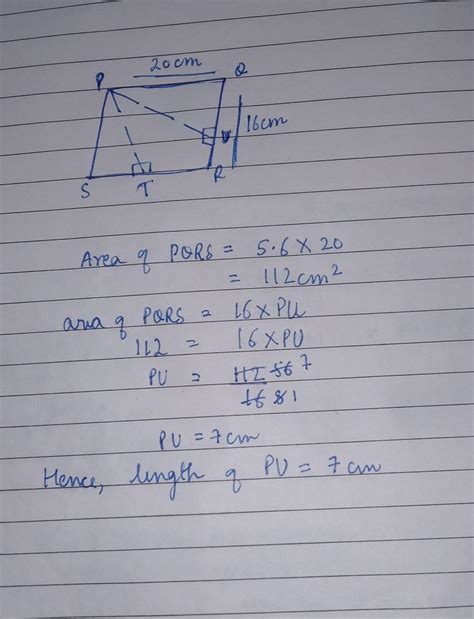 20cm
P
Q
16cm
U
S
T
R
Area of PQRS = 5.6 X 20
= 112cm²
area of PQRS = 16 X PU
112 = 16 X PU
PU = 112 56 7
16 8 1
PU = 7cm
Hence, length of PU = 7cm